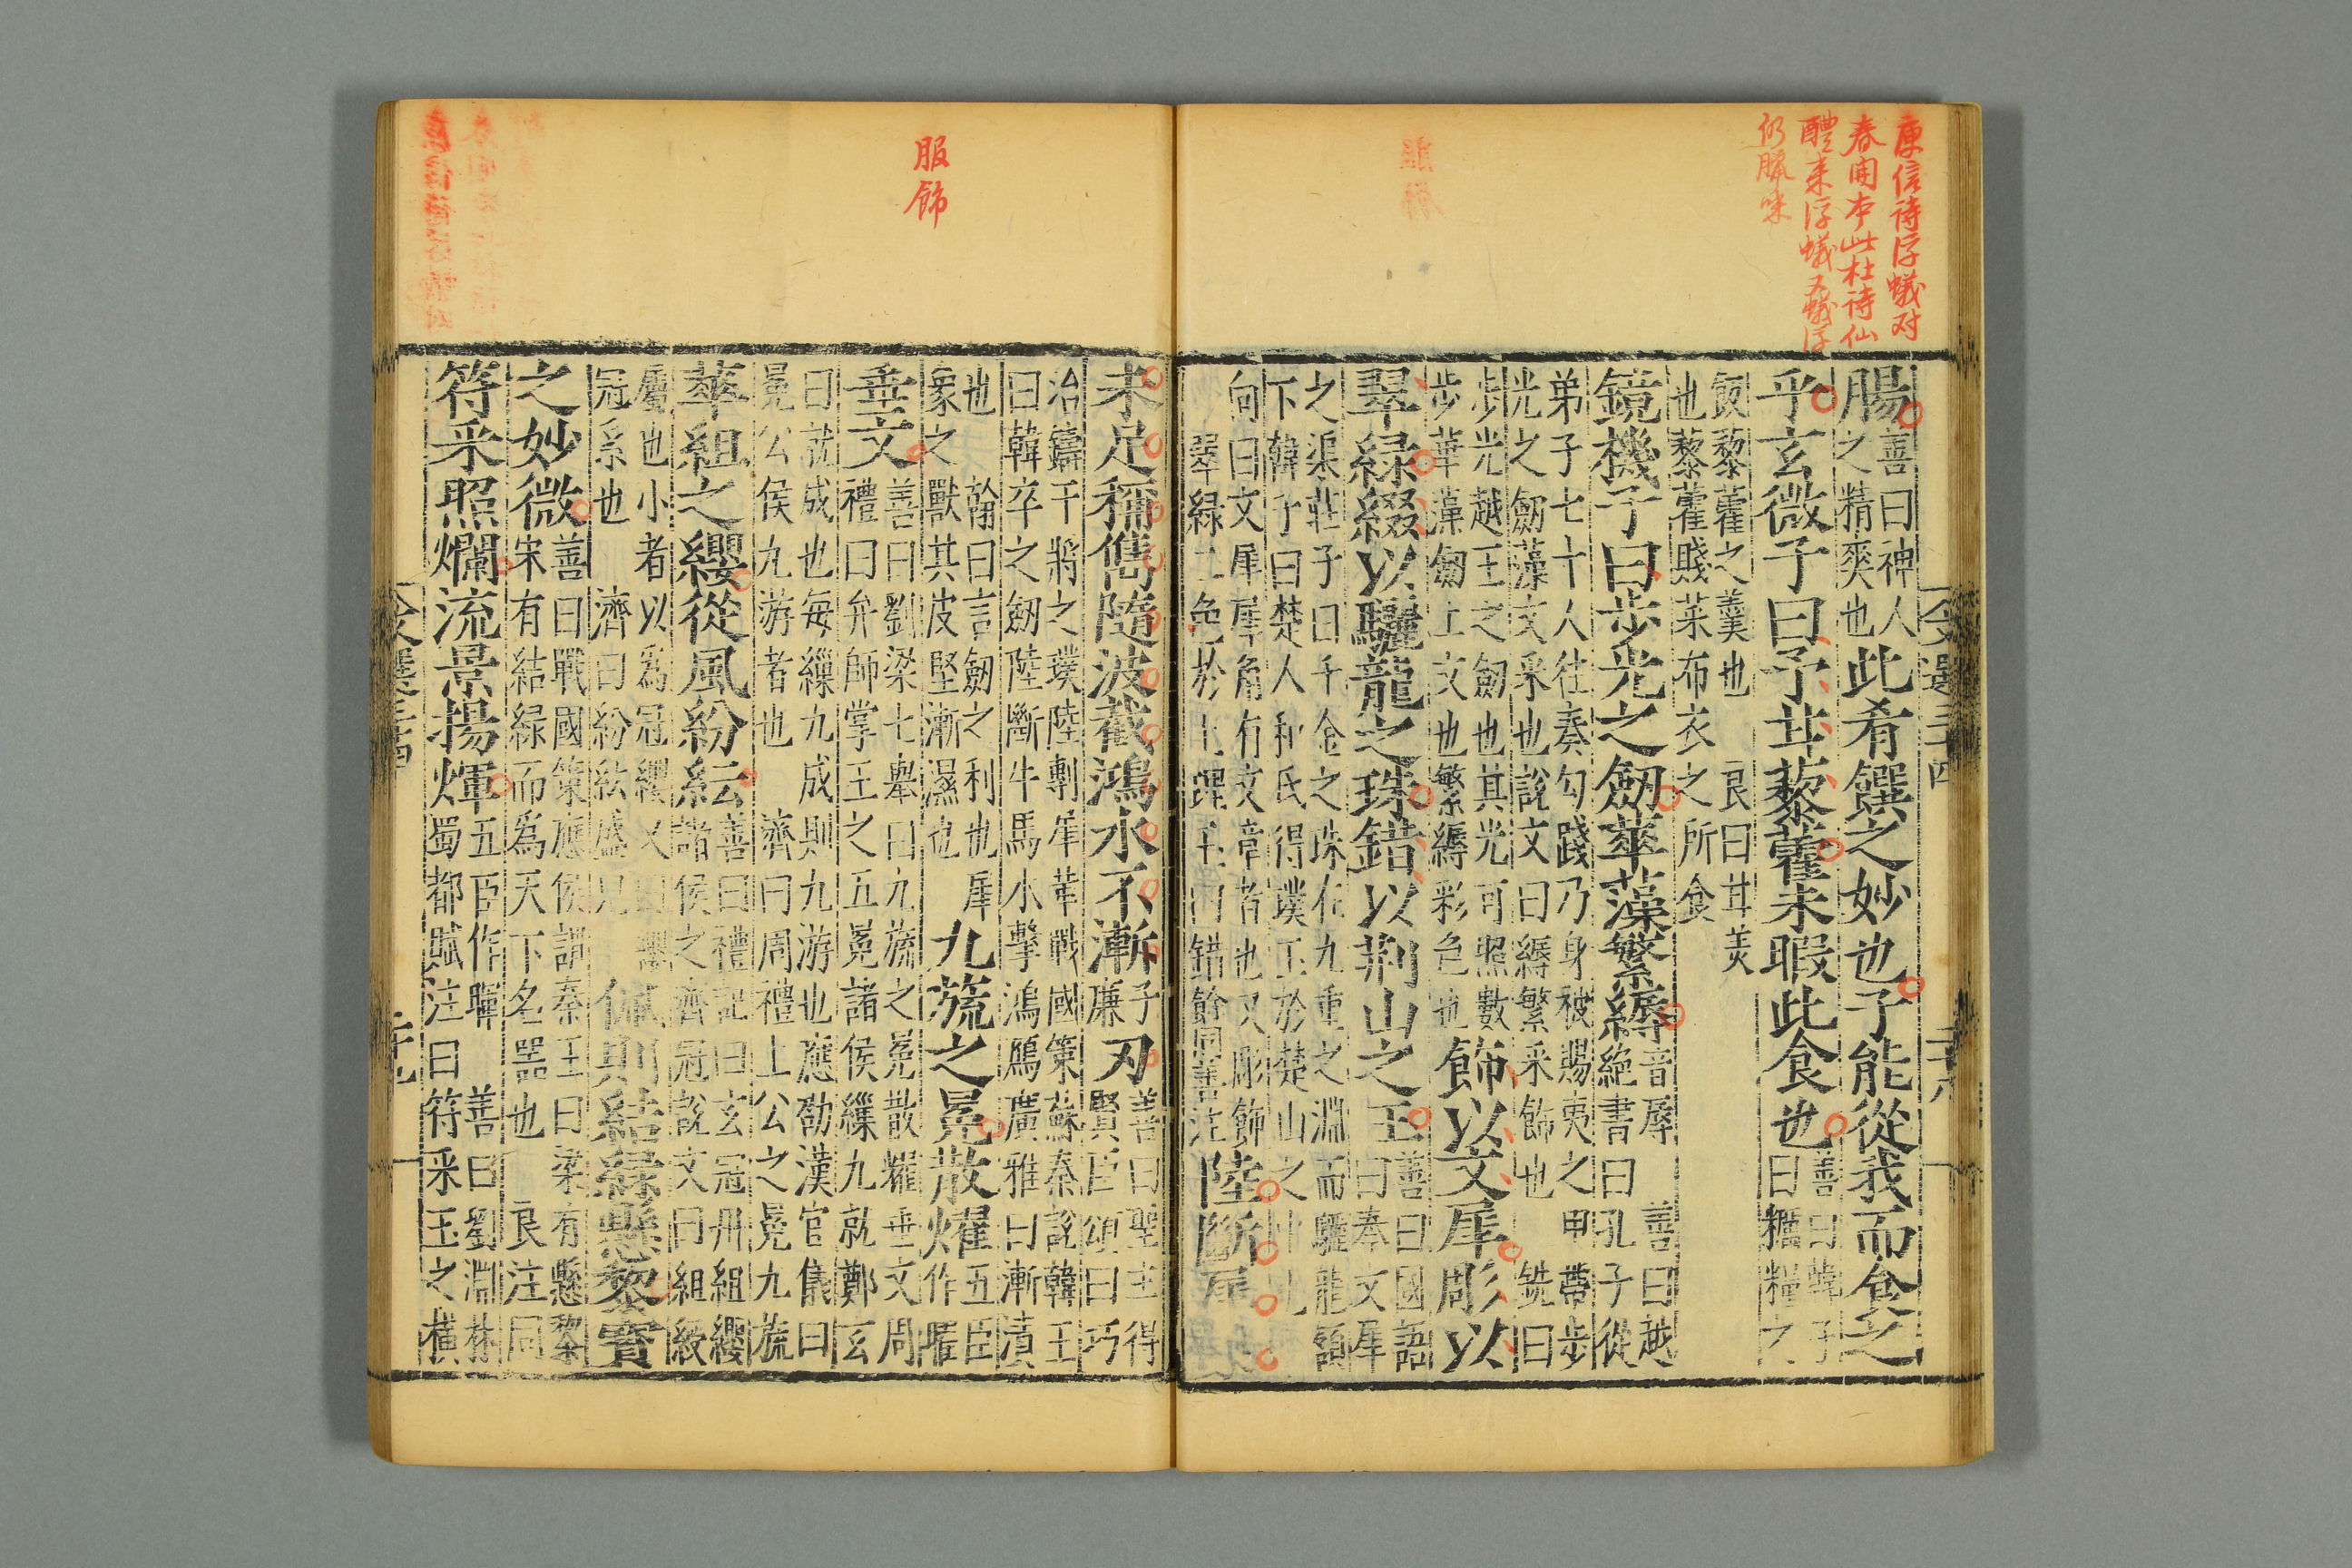 庾信詩浮蟻对
春開本此杜詩仙
醴来浮蟻又蟻浮
仍臘味
腸善曰神人
之精爽也此肴饌之妙也子能從我而食之
乎玄微子曰予甘藜藿未暇此食也善曰韓子
曰糲糧之
飯藜藿之羹也良曰甘美
也藜藿賤菜布衣之所食
鏡機子曰步光之劒華藻繁縟音辱善曰越
絶書曰孔子從
弟子七十人往奏勾踐乃身被賜夷之甲帶步
光之劒藻文采也說文曰縟繁采飾也銑曰
步光越王之劒也其光可照數
步華藻劒上文也繁縟彩色也飾以文犀彫以
翠緑綴以驪龍之珠錯以荆山之玉善曰國語
曰奉文犀
之渠莊子曰千金之珠在九重之淵而驪龍頷
下韓子曰楚人和氏得璞玉於楚山之中九
向曰文犀犀角有文章者也又彫飾
翠緑二色於上錯餘同善注陸斷犀
服飾
未足稱儁隨波截鴻水不漸子
廉刃善曰聖主得
賢臣頌曰巧
冶鑄干將之璞陸剸犀革戰國策蘇秦說韓王
曰韓卒之劒陸斷牛馬水擊鴻鴈廣雅曰漸漬
也翰曰言劒之利也犀
象之獸其皮堅漸濕也九旒之冕散燿五臣
作曜
垂文善曰劉梁七舉曰九旒之冕散耀垂文周
禮曰弁師掌王之五冕諸侯繅九就鄭玄
曰就成也每繅九成則九游也應劭漢官儀曰
冕公侯九游者也濟曰周禮上公之冕九旒
華組之纓從風紛紜善曰禮記曰玄冠丹組纓
諸侯之齊冠說文曰組綬
屬也小者以為冠纓又曰纓
冠系也濟曰紛紜盛皃佩則結緑懸黎寶
之妙微善曰戰國策應侯謂秦王曰梁有懸黎
宋有結緑而為天下名器也良注同
符采照爛流景揚煇五臣作暉善曰劉淵林
蜀都賦注曰符采玉之橫